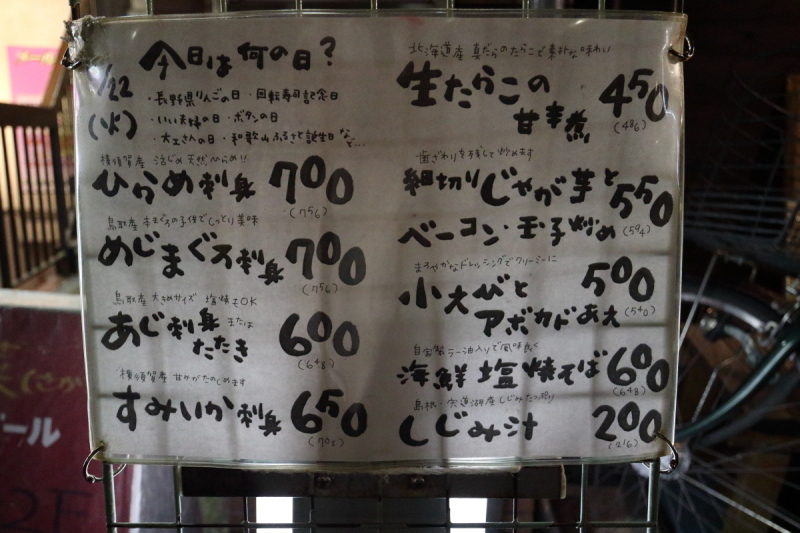 今日は何の日?
/22
(火)
・長野県りんごの日・回転寿司記念日
・いい夫婦の日・ボタンの日
・大工さんの日・和歌山ふるさと誕生日など...
横須賀産 活じめ天然ひらめ!!
ひらめ刺身 700
(756)
鳥取産 本まぐろの子供でしっとり美味
めじまぐろ刺身 700
(756)
鳥取産 大きめサイズ 塩焼きもOK
あじ刺身 または たたき 600
(648)
横須賀産 甘さがたのしめます
すみいか刺身 650
(702)
北海道産 真だらのたらこで素朴な味わい
生たらこの
甘辛煮 450
(486)
歯ざわりを残して炒めます
細切りじゃが芋と
ベーコン・玉子炒め 550
(594)
まろやかなドレッシングでクリーミーに
小えびと
アボカドあえ 500
(540)
自家製ラー油入りで風味良く
海鮮塩焼そば 600
(648)
島根・宍道湖産 しじみたっぷり
しじみ汁 200
(216)
ール